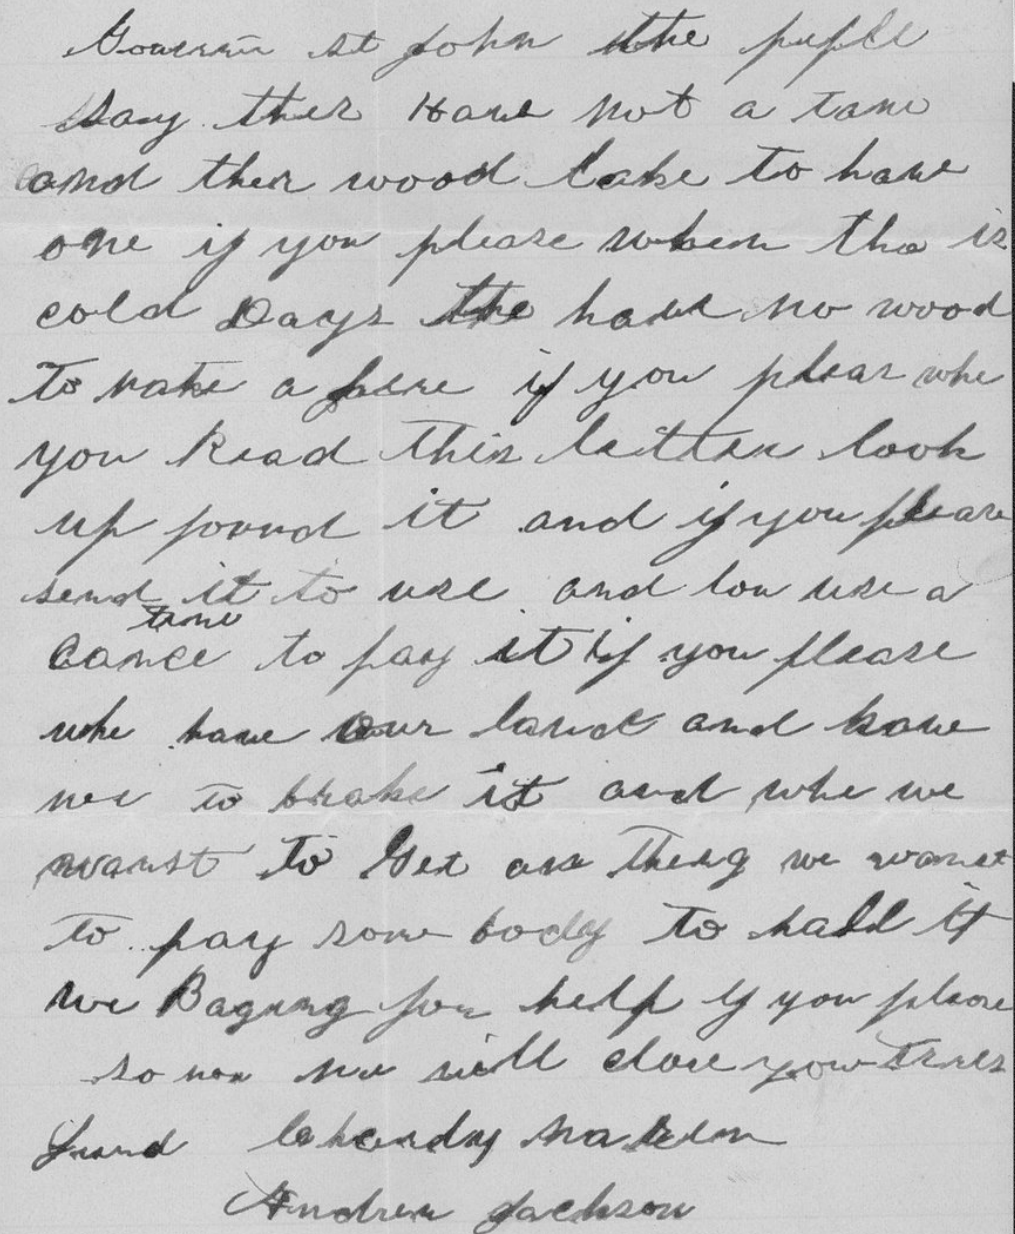 Governor st John the pepble
say ther Have not a tame
and ther wood lake to have
one if you please when tha is
cold Days the have no wood
to make a fiere if you pleas whe
you Read this letter look
up found it and if you please
send it to use and low use a
time
Cance to pay it if you please
whe have our land and have
to brake it and whe we
wanst to Get ane theng we wanst
to pay some body to hall it
we Baging for help if you please
so now we will close your trues
frend
Andrew Jackson